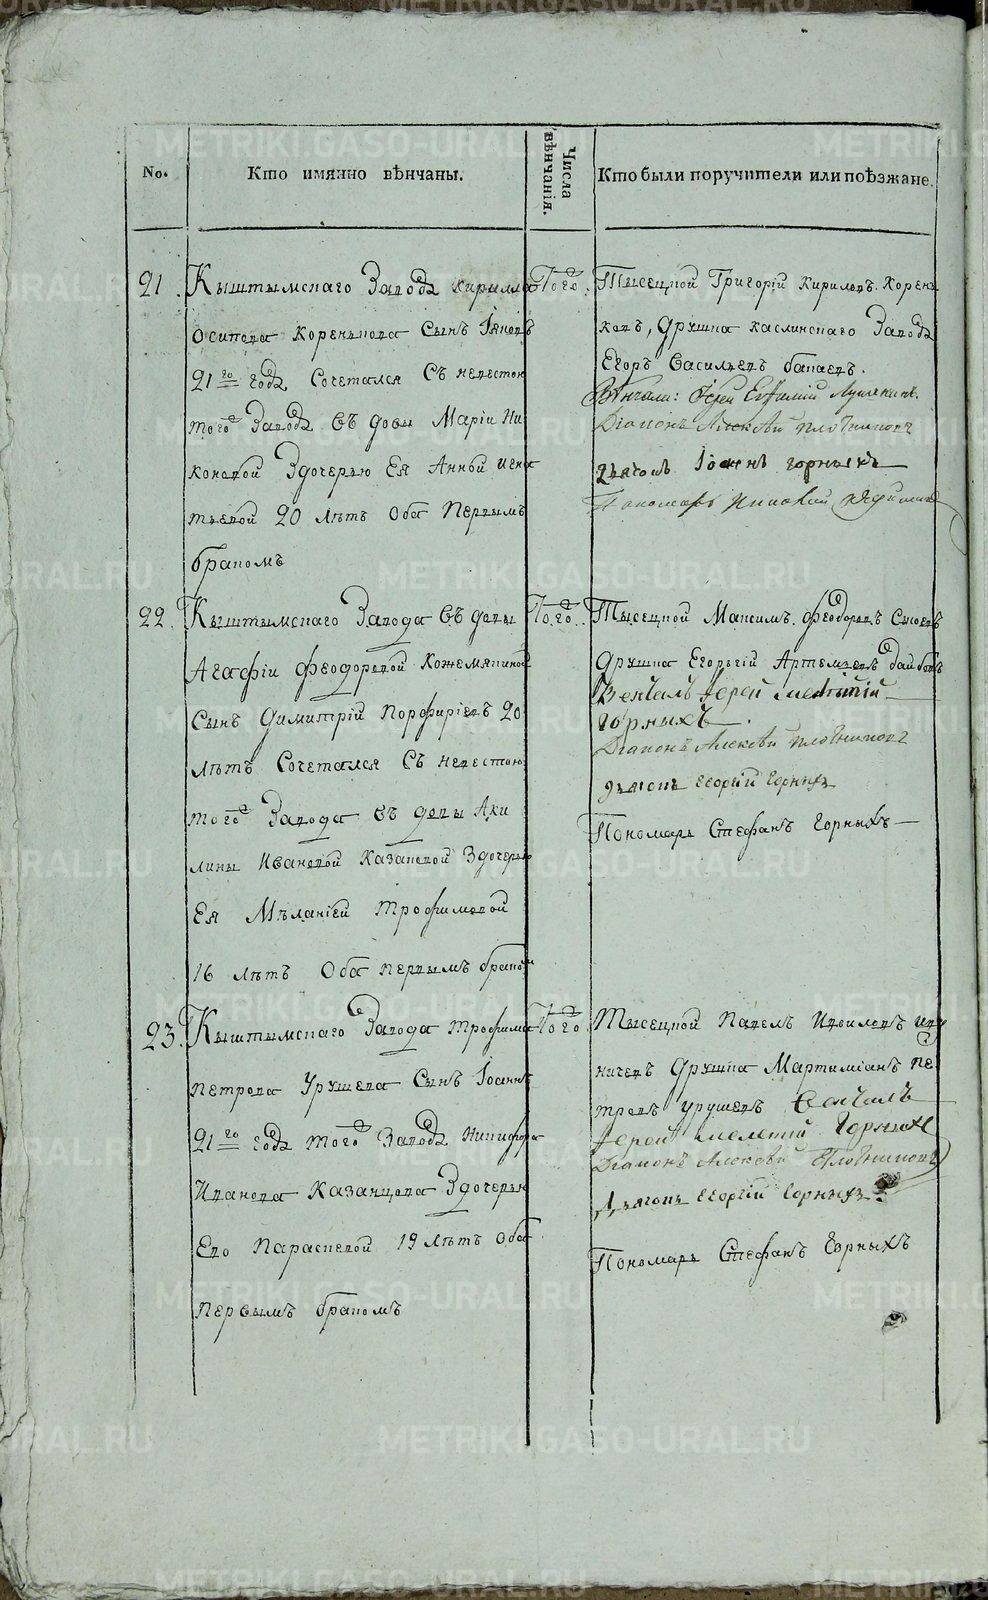 No.
Кто имянно вѣнчаны.
Числа вѣнчанія.
Кто были поручители или поѣзжане.
21.
Кыштымскаго Завода Кирилла
Осипова Коренькова Сынъ Іяковъ
21го года Сочетался Съ невестою
того Завода Въ довы Маріи Ни-
коновой Здочерью Ея Анной Игна
тьевой 20 лѣтъ Оба Первымъ
бракомъ
Того.
Тысецкой Григорій Кириловъ Корень
ковъ, Дружка каслинскаго Завода
Егоръ Васильевъ бапаевъ.
Вѣнчали: Іерей Евѳимій
Діаконъ Алексѣй Плотниковъ
дьячокъ Іоаннъ горныхъ
Пономарь
22.
Кыштымскаго Завода Въ довы
Агафіи Феодоровой Кожемякиной
Сынъ Димитрій Порфиріевъ 20
лѣтъ Сочетался Съ невестою
того Завода Въ довы Аки
лины Ивановой Казаковой Здочерью
Ея Мѣланіей Трофимовой
16 лѣтъ Оба первымъ бракомъ
Того.
Тысецкой Максимъ Феодоровъ Сысоевъ
Дружка Егорьгій Артемьевъ
Венчалъ Іерей Мелетій
Горныхъ.
Діаконъ Алексѣй Плотниковъ
дьячокъ Георгій Горныхъ
Пономарь Стефанъ Горныхъ
23.
Кыштымскаго Завода Трофима
Петрова Урушева Сынъ Іоаннъ
21го года того Завода Никифора
Иванова Казанцова Здочерью
Его Параскевой 19 лѣтъ Оба
первымъ бракомъ
Того
Тысецкой Павелъ
Дружка Мартиміанъ Пе
тровъ урушевъ Венчалъ
Іерей Мелетій Горныхъ
Діаконъ Алексѣй Плотниковъ
Дьячокъ Георгій Горныхъ
Пономарь Стефанъ Горныхъ
METRIKI.GASO-URAL.RU